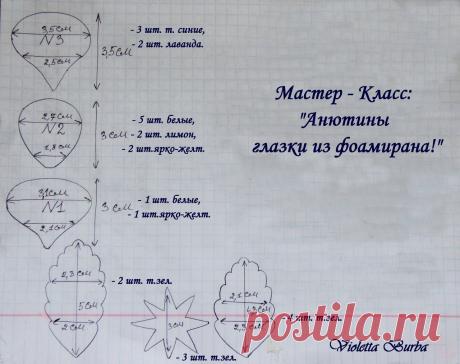 3,5см
N3
2,5см
3,5см
- 3 шт. т. синие,
- 2 шт. лаванда.
Мастер - Класс:
"Анютины
глазки из фоамирана!"
2,7см
N2
1,8см
3см
- 5 шт. белые,
- 2 шт. лимон,
- 2 шт.ярко-желт.
3,1см
N1
2,1см
3см
- 1 шт. белые,
- 1 шт.ярко-желт.
2,3см
5см
2см
- 2 шт. т.зел.
3см
- 3 шт. т.зел.
2,1см
2,3см
- 4 шт. т.зел.
Violetta Burba
postila.ru